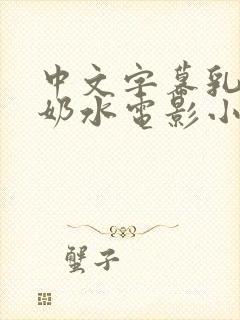 中文字幕乳
奶水电影小
蟹子